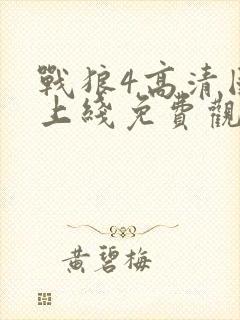 戰狼4高清
上綫免費觀
黃碧梅